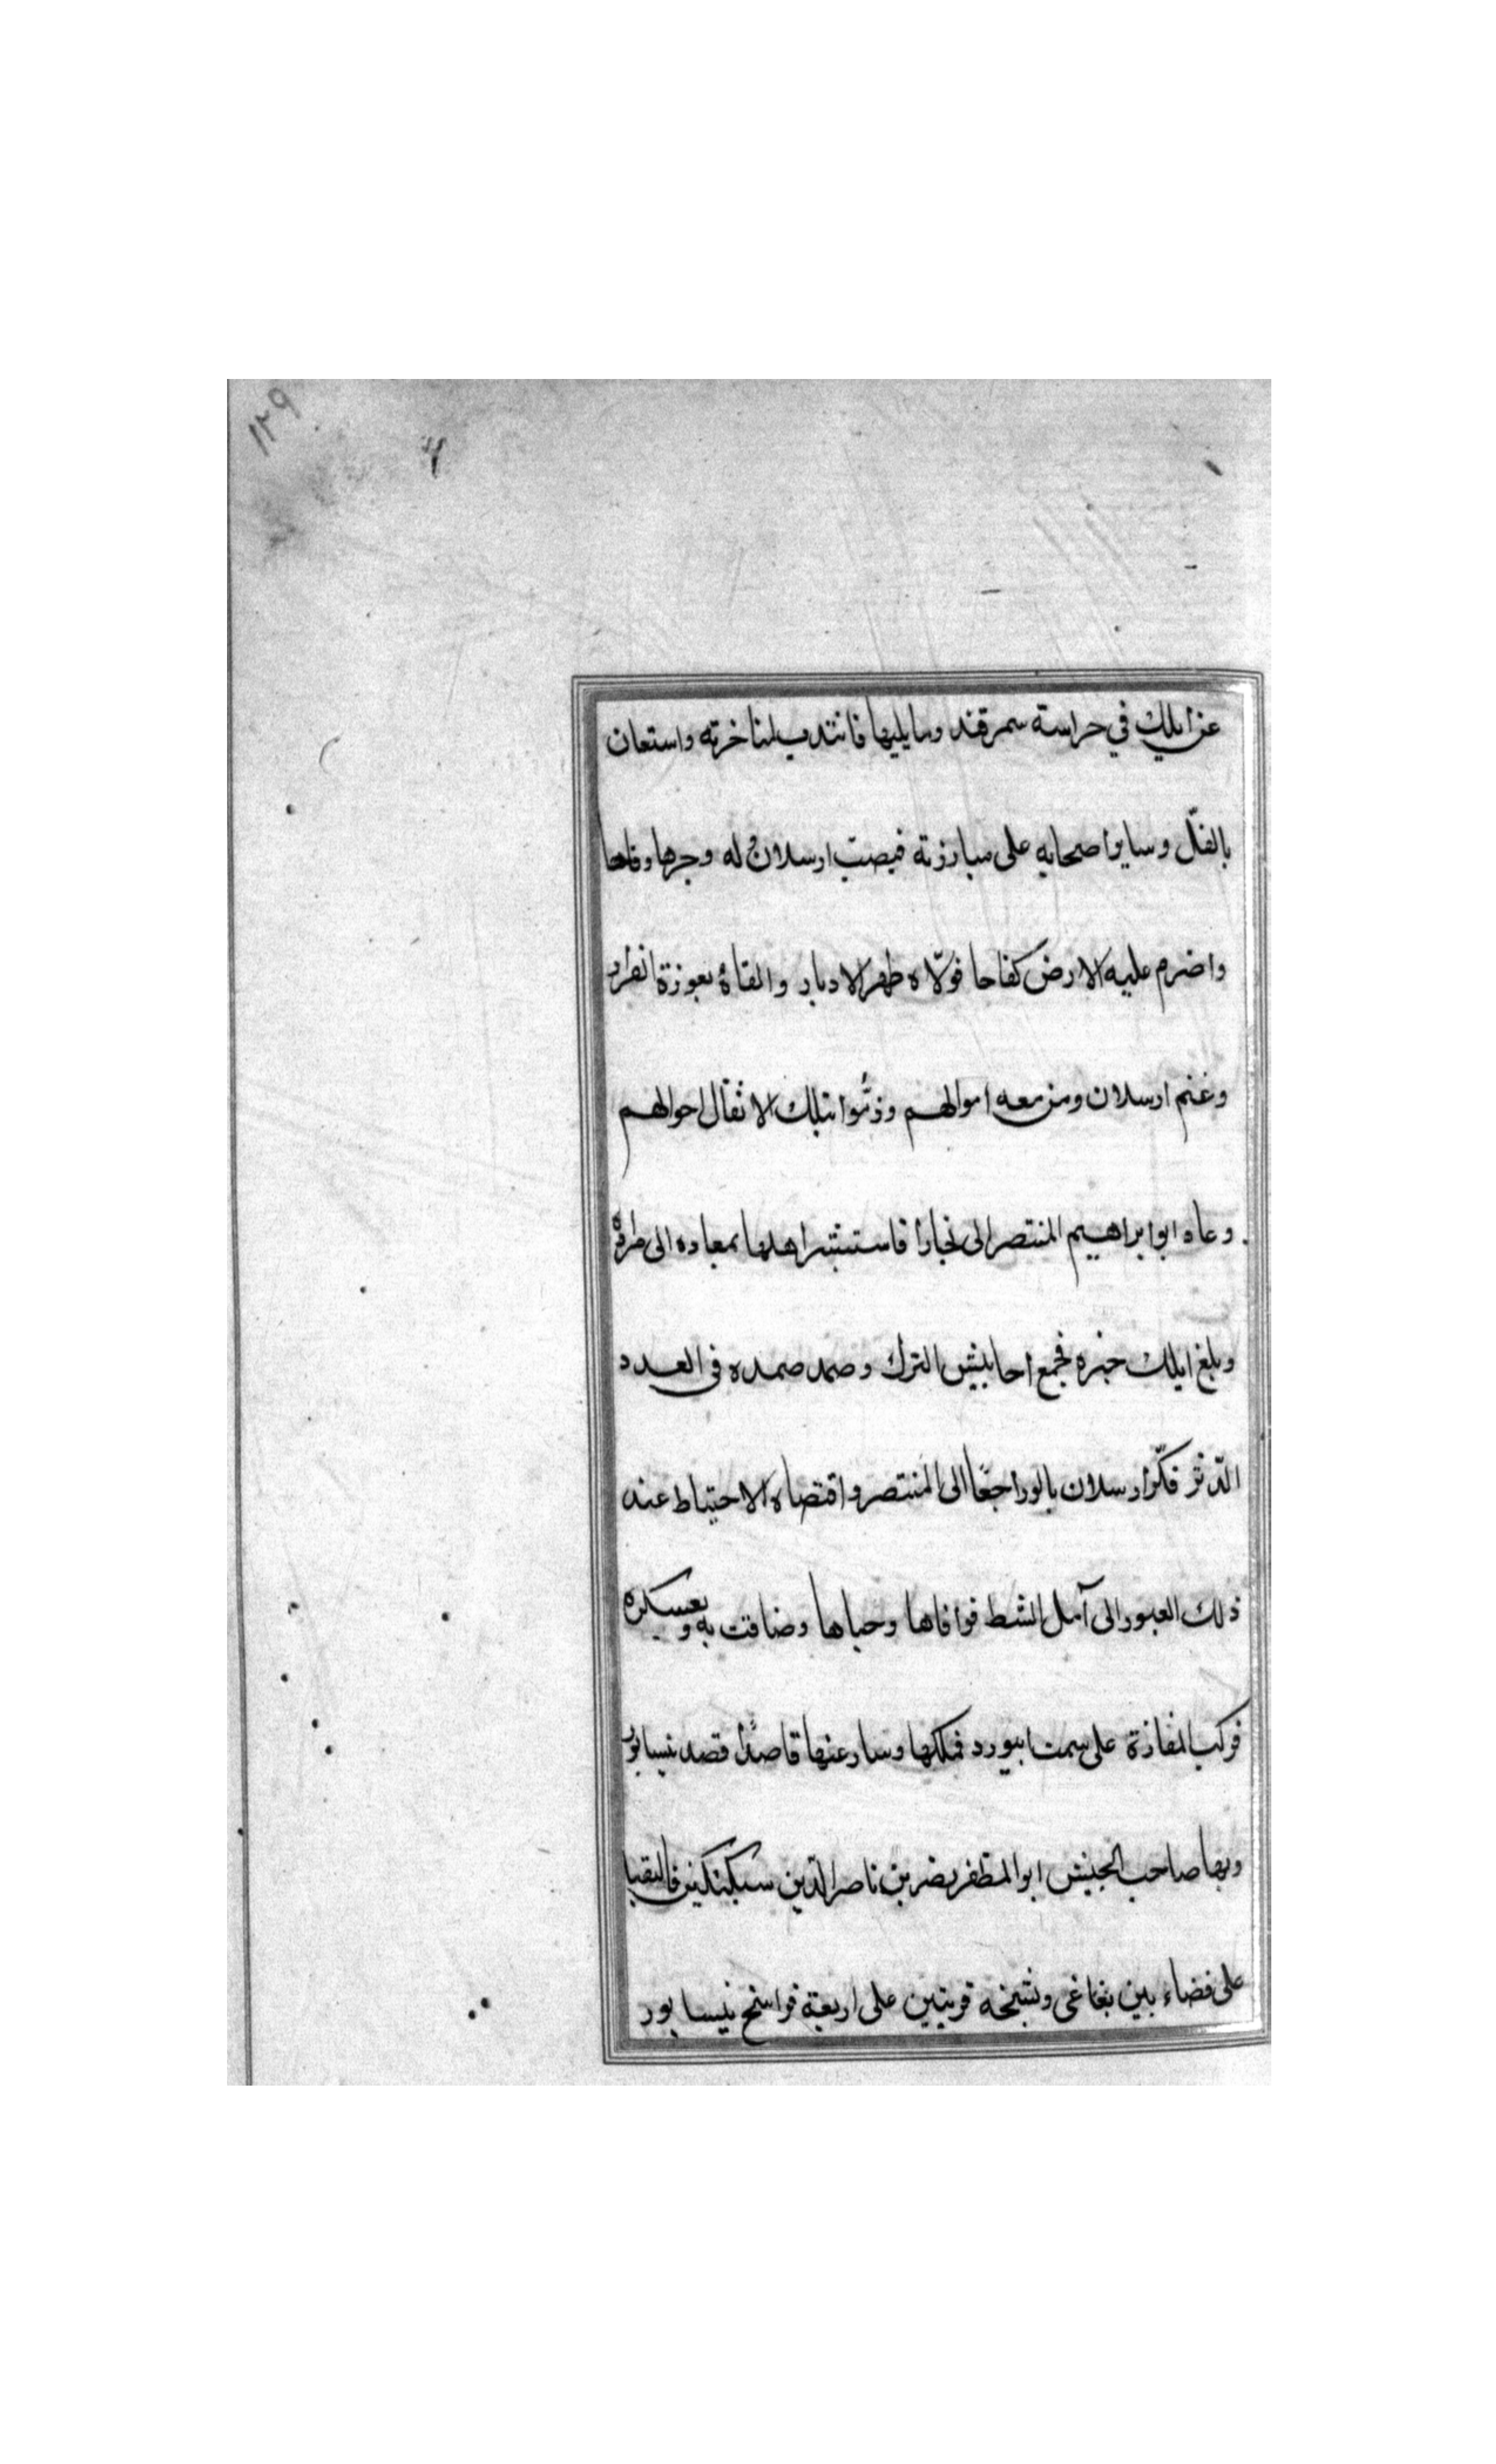 ١٢٩
عن ايلك في حراسة سمرقند وما يليها فانتدب لمناخرته واستعان
بالفلّ وسايرا صحابه على مبارزته فيصبّ ارسلان له وجرها وقاحا
واضرم عليه الارض كفاحا فولّاه ظهر الادبار والقاه بعوزة انفرار
وغنم ارسلان ومن معه اموالهم وذمّوا بتلك الاثقال احوالهم
وعاد ابو ابراهيم المنتصر الى بخارا فاستبشر اهلها بمعاده الى
وبلغ ايلك خبره فجمع احابيش الترك وصمد صمده في العدد
الدّثر فكرّ ارسلان بالو راجعًا الى المنتصر واقتضاه الاحتياط عند
ذلك العبور الى آمل الشط فوافاها وحباها وضاقت به وبعسكره
فركب المفازة على سمت ابيورد فملكها وسار عنها قاصدًا قصد نيسابور
وبها صاحب الجيش ابو المظفر نصر بن ناصر الدّين سبكتكين فالتقيا
على فضاء بين بغاغى وبشنخه قريتين على اربعة فراسخ نيسابور